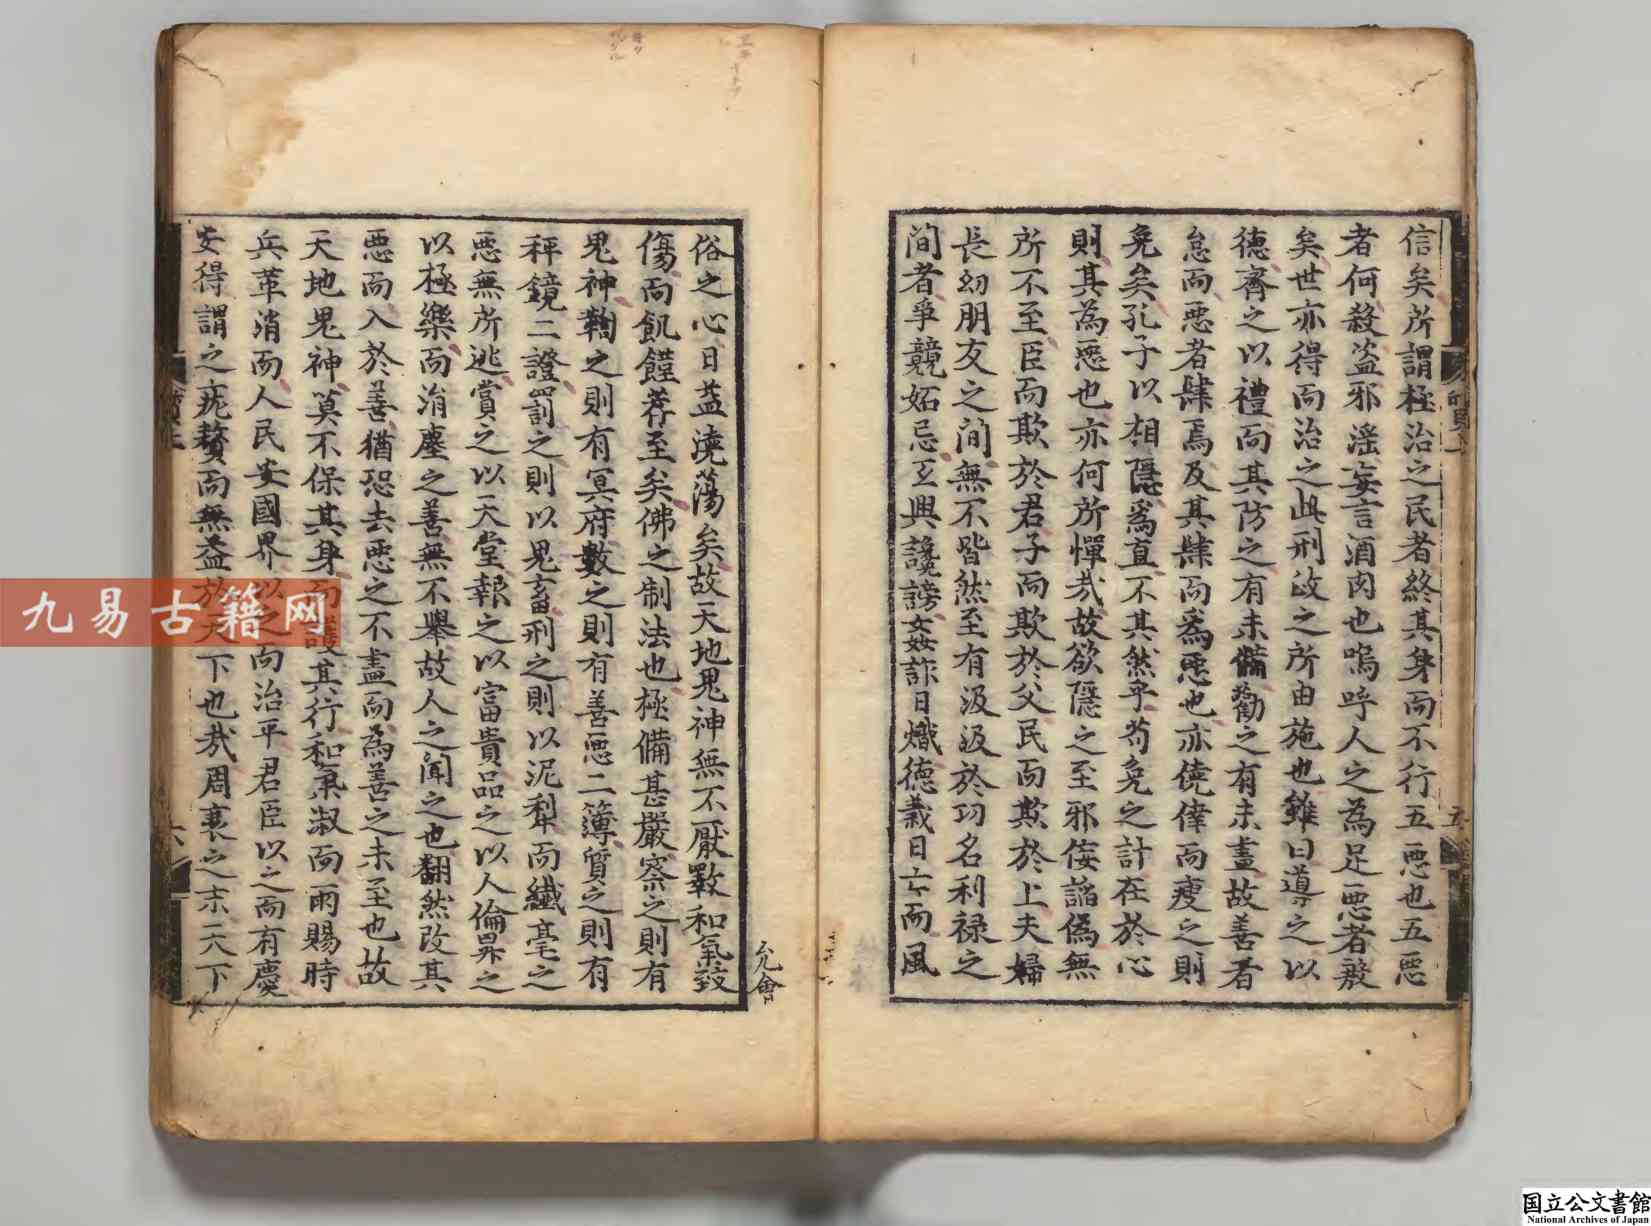 信矣所謂極治之民者終其身而不行五惡也五惡
者何殺盗邪滛妄言酒肉也嗚呼人之為足惡者殺
矣世亦得而治之此刑政之所由施也雖曰導之以
德齊之以禮而其防之有未備勸之有未盡故善者
怠而惡者肆焉及其肆而爲惡也亦僥倖而瘦之則
免矣孔子以相隱爲直不其然乎苟免之計在於心
則其為惡也亦何所憚㢤故欲隱之至邪侫謟偽無
所不至臣而欺於君子而欺於父民而欺於上夫婦
長幼朋友之間無不皆然至有汲汲於功名利禄之
間者爭競妬忌互興讒謗姦詐日熾德義日亡而風
俗之心日益澆蕩矣故天地鬼神無不厭斁和氣致
傷而飢饉荐至矣佛之制法也極備甚嚴察之則有
鬼神鞫之則有冥府數之則有善惡二簿質之則有
秤鏡二證罰之則以鬼畜刑之則以泥犁而纖毫之
惡無所逃賞之以天堂報之以富貴品之以人倫畀之
以極樂而涓塵之善無不舉故人之聞之也翻然改其
惡而入於善猶恐去惡之不盡而為善之未至也故
天地鬼神莫不保其身而護其行和氣淑而雨賜時
兵革消而人民安國界以之而治平君臣以之而有慶
安得謂之疣贅而無益於天下也㢤周衰之末天下
允會
五
六
九易古籍网
国立公文書館
National Archives of Japan